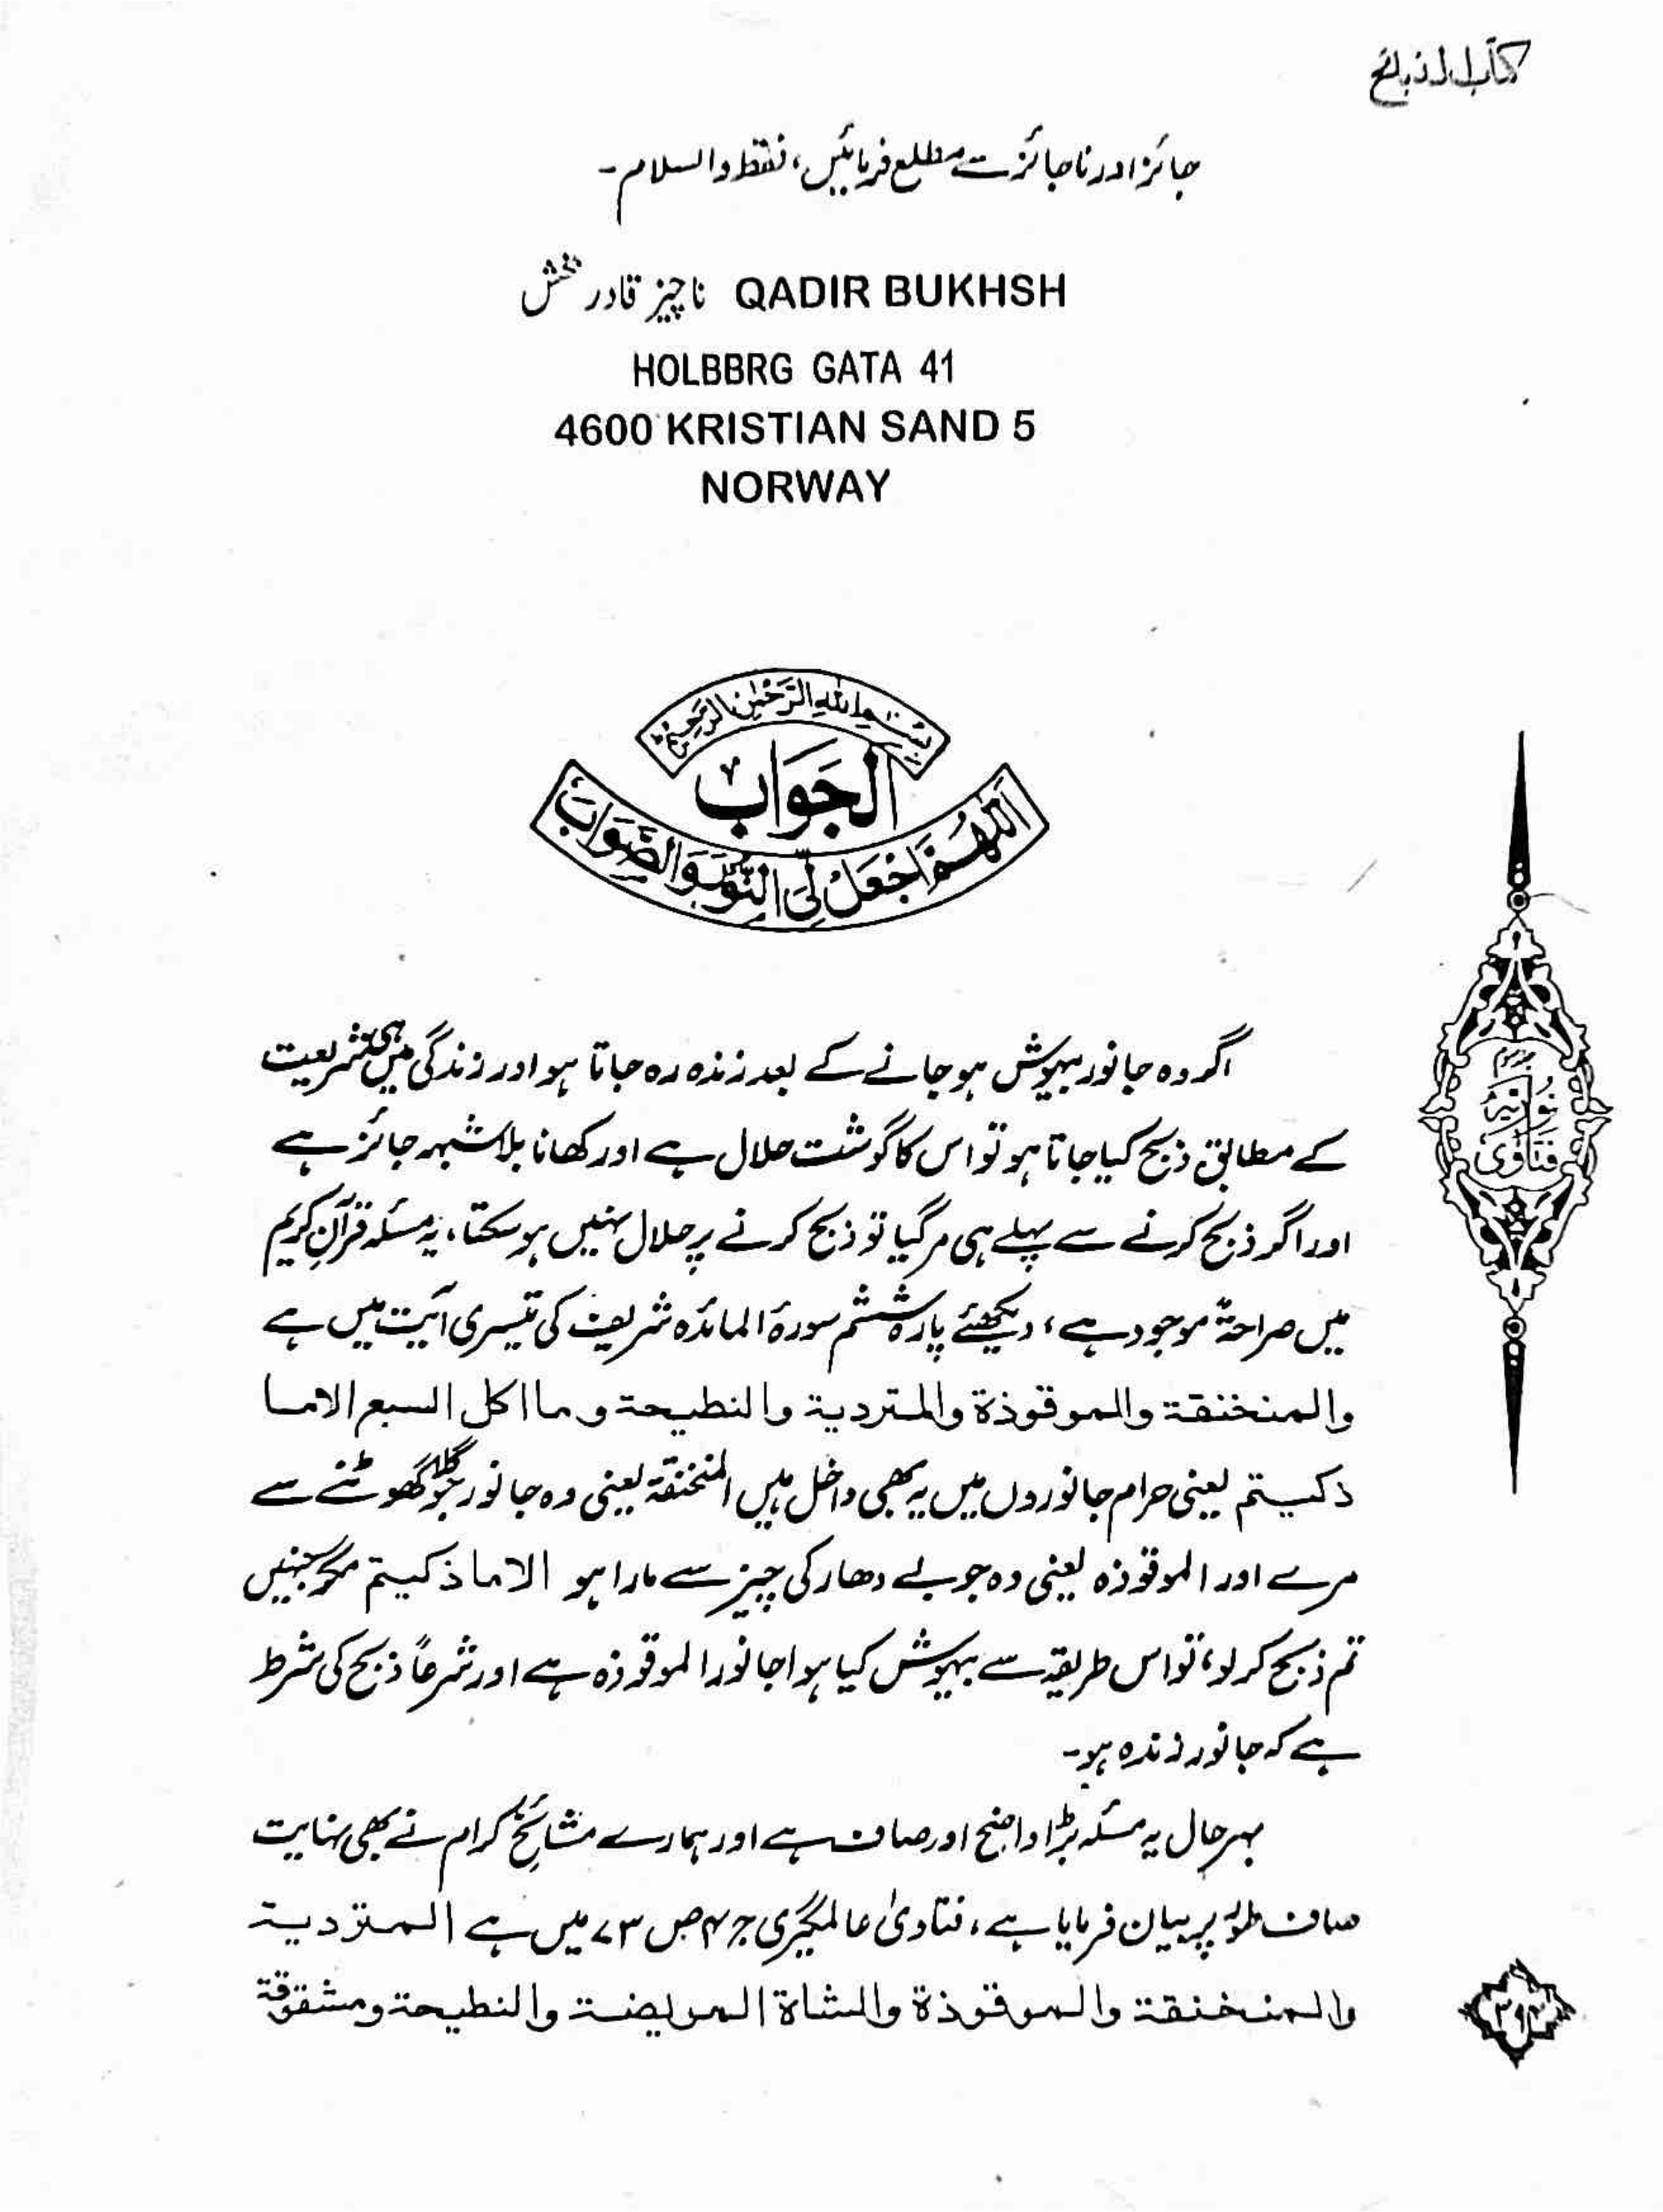 کتاب الذبائح
جائز اور ناجائز سے مطلع فرمائیں، فقط والسلام۔
ناچیز قادر بخش QADIR BUKHSH
HOLBBRG GATA 41
4600 KRISTIAN SAND 5
NORWAY
بِسْمِ اللهِ الرَّحْمٰنِ الرَّحِيْمِ
الجَوَابُ
اَللّٰهُمَّ اجْعَلْ لِّیَ النُّوْرَ وَالصَّوَابَ
اگر وہ جانور بیہوش ہو جانے کے بعد زندہ رہ جاتا ہو اور زندگی میں ہی شریعت
کے مطابق ذبح کیا جاتا ہو تو اس کا گوشت حلال ہے اور کھانا بلاشبہہ جائز ہے
اور اگر ذبح کرنے سے پہلے ہی مر گیا تو ذبح کرنے پر حلال نہیں ہو سکتا، یہ مسئلہ قرآنِ کریم
میں صراحۃً موجود ہے، دیکھئے پارہ ششم سورۂ المائدہ شریف کی تیسری آیت میں ہے
والمنخنقة والموقوذة والمتردية والنطيحة وما اكل السبع الا ما
ذكيتم یعنی حرام جانوروں میں یہ بھی داخل ہیں المنخنقۃ یعنی وہ جانور جو گلا گھوٹنے سے
مرے اور الموقوذہ یعنی وہ جو بے دھار کی چیز سے مارا ہو الا ما ذكيتم مگر جنہیں
تم ذبح کر لو، تو اس طریقہ سے بیہوش کیا ہوا جانور الموقوذہ ہے اور شرعاً ذبح کی شرط
ہے کہ جانور زندہ ہو۔
بہرحال یہ مسئلہ بڑا واضح اور صاف ہے اور ہمارے مشائخِ کرام نے بھی نہایت
صاف طور پر بیان فرمایا ہے، فتاویٰ عالمگیری ج ۴ ص ۷۳ میں ہے المتردية
والمنخنقة والموقوذة والشاة المريضة والنطيحة ومشقوقة
نُوریَّہ
فتاویٰ
۳۹۳